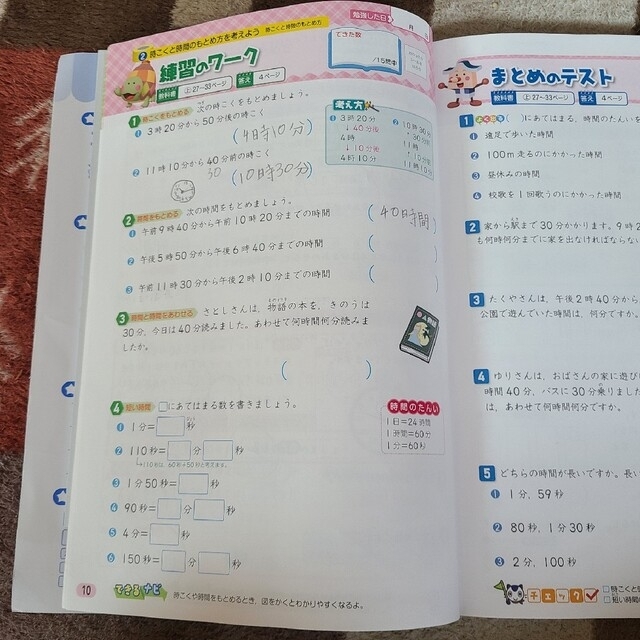 ② 時こくと時間のもとめ方を考えよう 時こくと時間のもとめ方
練習のワーク
教科書 上27〜33ページ 答え 4ページ
勉強した日 月
できた数
/15問中
1 時こくをもとめる 次の時こくをもとめましょう。
① 3時20分から50分後の時こく
(4時10分)
② 11時10分から40分前の時こく
30
(10時30分)
考え方
① 3時20分
↓40分後
4時
↓10分後
4時10分
② 10時30分
11時
11時10分
2 時間をもとめる 次の時間をもとめましょう。
① 午前9時40分から午前10時20分までの時間
(40時間)
② 午後5時50分から午後6時40分までの時間
( )
③ 午前11時30分から午後2時10分までの時間
( )
3 時間と時間をあわせる さとしさんは、物語の本を、きのうは
30分、今日は40分読みました。あわせて何時間何分読みま
したか。
( )
4 短い時間 □にあてはまる数を書きましょう。
① 1分=□秒
② 110秒=□分□秒
110秒は、60秒と50秒と考えます。
③ 1分50秒=□秒
④ 90秒=□分□秒
⑤ 4分=□秒
⑥ 150秒=□分□秒
時間のたんい
1日=24時間
1時間=60分
1分=60秒
10
できるナビ 時こくや時間をもとめるとき、図をかくとわかりやすくなるよ。
まとめのテスト
教科書 上27〜33ページ 答え 4ページ
1 よく出る ( )にあてはまる、時間のたんいを
① 遠足で歩いた時間
② 100m走るのにかかった時間
③ 昼休みの時間
④ 校歌を1回歌うのにかかった時間
2 家から駅まで30分かかります。9時2
も何時何分までに家を出なければならない
3 たくやさんは、午後2時40分から
公園で遊んでいた時間は、何分ですか。
4 ゆりさんは、おばさんの家に遊びに
時間40分、バスに30分乗りました
は、あわせて何時間何分ですか。
5 どちらの時間が長いですか。長い
① 1分, 59秒
② 80秒, 1分30秒
③ 2分, 100秒
チェック
□時こくと
□短い時間